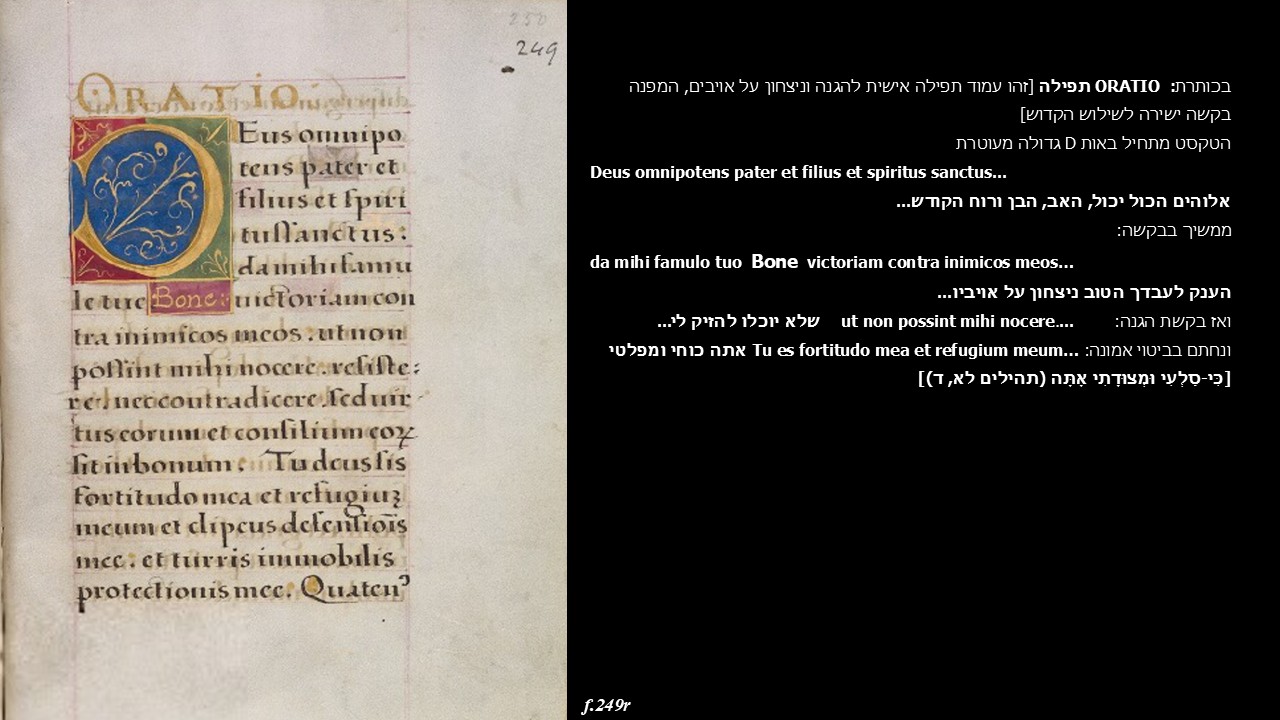 250
249
ORATIO
Eus omnipo
tens pater et
filius et spiri
tussanctus:
da mihi famu
le tue Bone: uictoriam con
tra inimicos meos: ut non
possint mihi nocere. resiste:
re. nec contradicere. sed uir
tus eorum et consilium eoꝝ
sit in bonum. Tu deus sis
fortitudo mea et refugiuʒ
meum et clipeus defensiōis
mee: et turris immobilis
protectionis mee. Quaten⁹
בכותרת: ORATIO תפילה [זהו עמוד תפילה אישית להגנה וניצחון על אויבים, המפנה
בקשה ישירה לשילוש הקדוש]
הטקסט מתחיל באות D גדולה מעוטרת
Deus omnipotens pater et filius et spiritus sanctus...
אלוהים הכול יכול, האב, הבן ורוח הקודש...
ממשיך בבקשה:
da mihi famulo tuo Bone victoriam contra inimicos meos...
הענק לעבדך הטוב ניצחון על אויביו...
ואז בקשת הגנה: ut non possint mihi nocere.... שלא יוכלו להזיק לי...
ונחתם בביטוי אמונה: Tu es fortitudo mea et refugium meum... אתה כוחי ומפלטי
[כִּי-סַלְעִי וּמְצוּדָתִי אָתָּה (תהילים לא, ד)]
f.249r